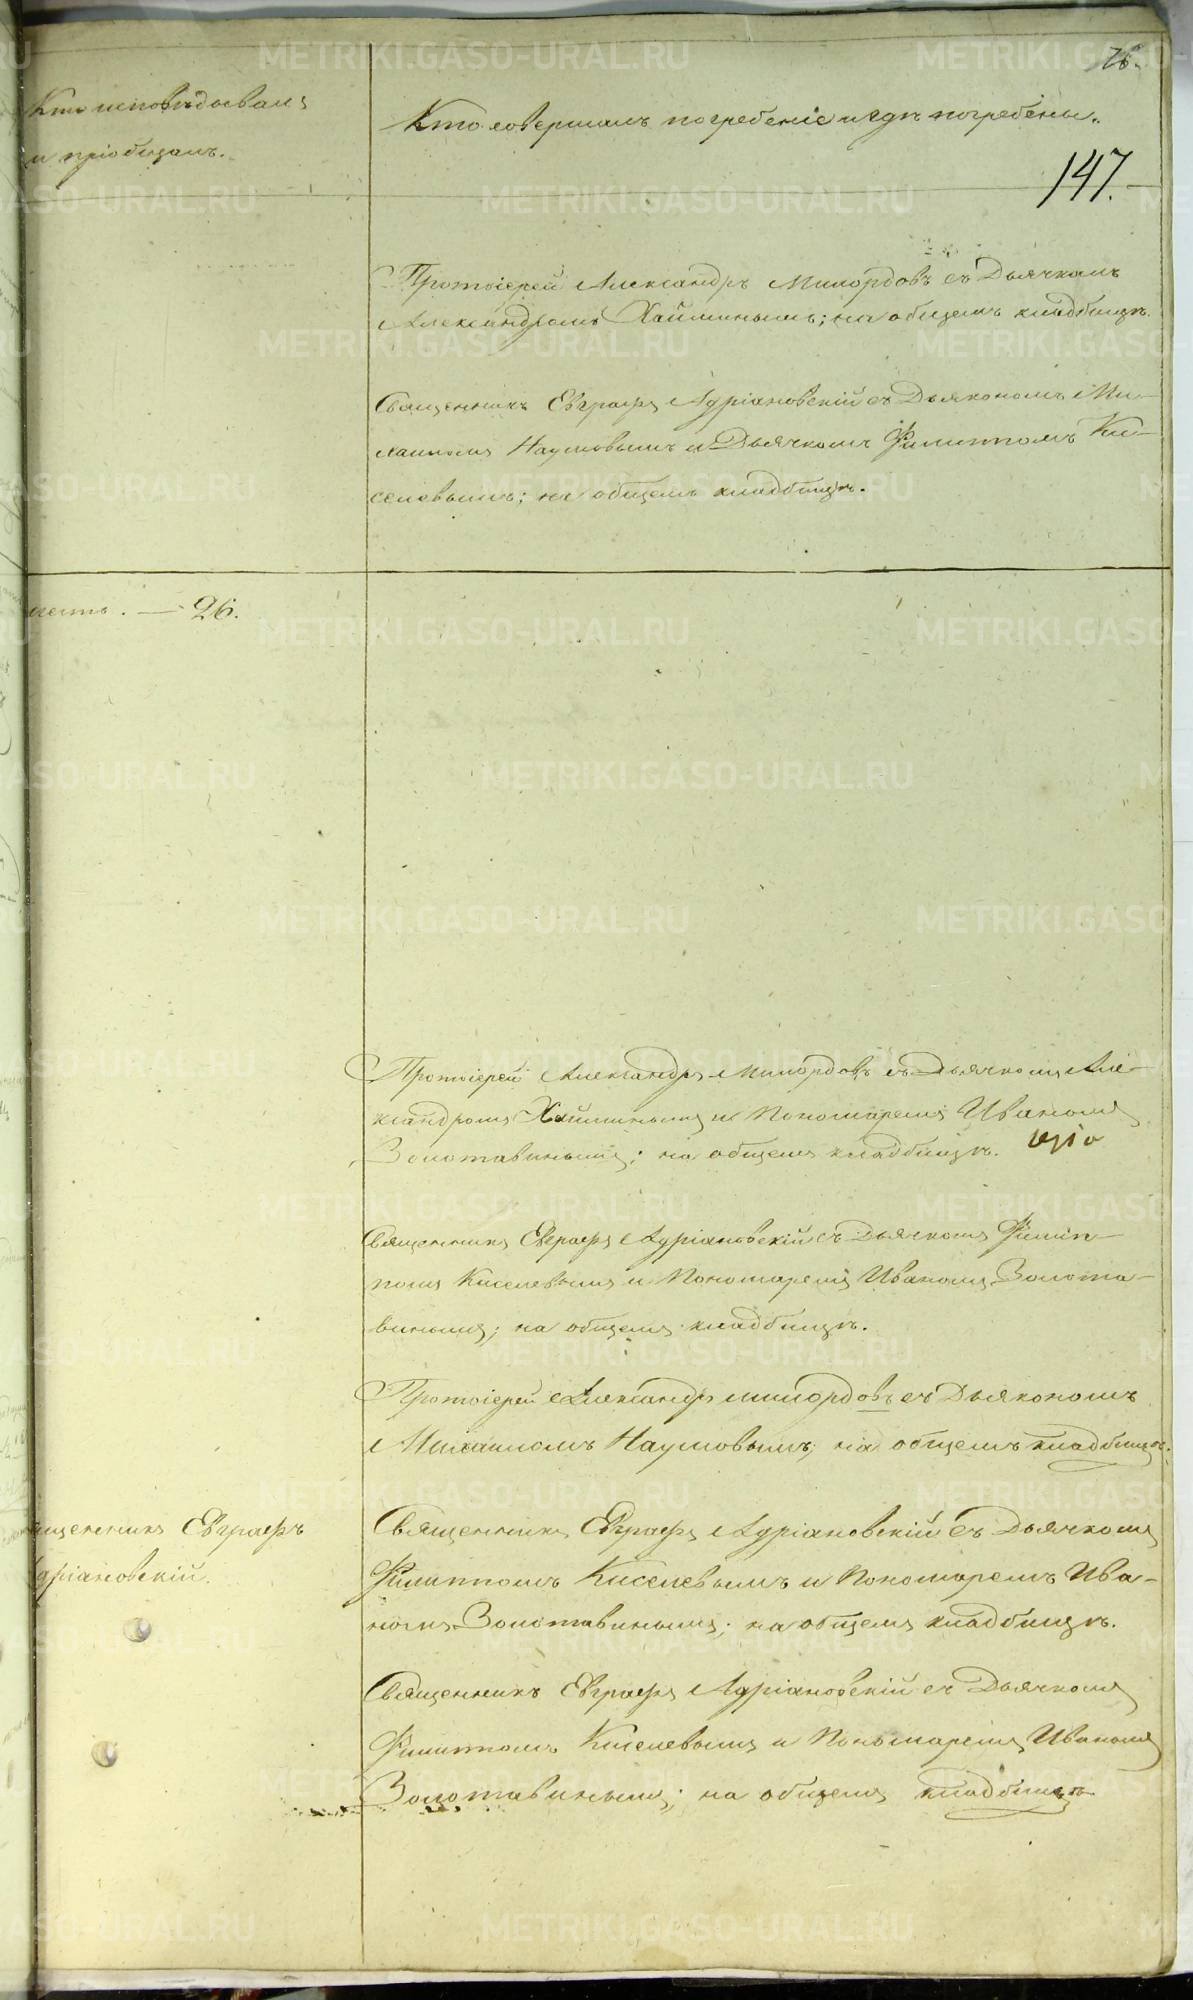 76.
Кто исповѣдывалъ
и пріобщалъ.
Кто совершалъ погребеніе и гдѣ погребены.
147.
Протоіерей Александръ Милордовъ съ Дьячкомъ
Александромъ Хайминымъ; на общемъ кладбищѣ.
Священникъ Евграфъ Адріановскій съ Дьякономъ Ми-
хаиломъ Наумовымъ и Дьячкомъ Филиппомъ Ки-
селевымъ; на общемъ кладбищѣ.
26.
Протоіерей Александръ Милордовъ съ Дьячкомъ Але-
ксандромъ Хайминымъ и Пономаремъ Иваномъ
Золотавинымъ; на общемъ кладбищѣ.
Священникъ Евграфъ Адріановскій съ Дьячкомъ Филип-
помъ Киселевымъ и Пономаремъ Иваномъ Золота-
винымъ; на общемъ кладбищѣ.
Протоіерей Александръ Милордовъ съ Дьякономъ
Михаиломъ Наумовымъ; на общемъ кладбищѣ.
ященникъ Евграфъ
дріановскій.
Священникъ Евграфъ Адріановскій съ Дьячкомъ
Филиппомъ Киселевымъ и Пономаремъ Ива-
номъ Золотавинымъ; на общемъ кладбищѣ.
Священникъ Евграфъ Адріановскій съ Дьячкомъ
Филиппомъ Киселевымъ и Пономаремъ Иваномъ
Золотавинымъ; на общемъ кладбищѣ
METRIKI.GASO-URAL.RU